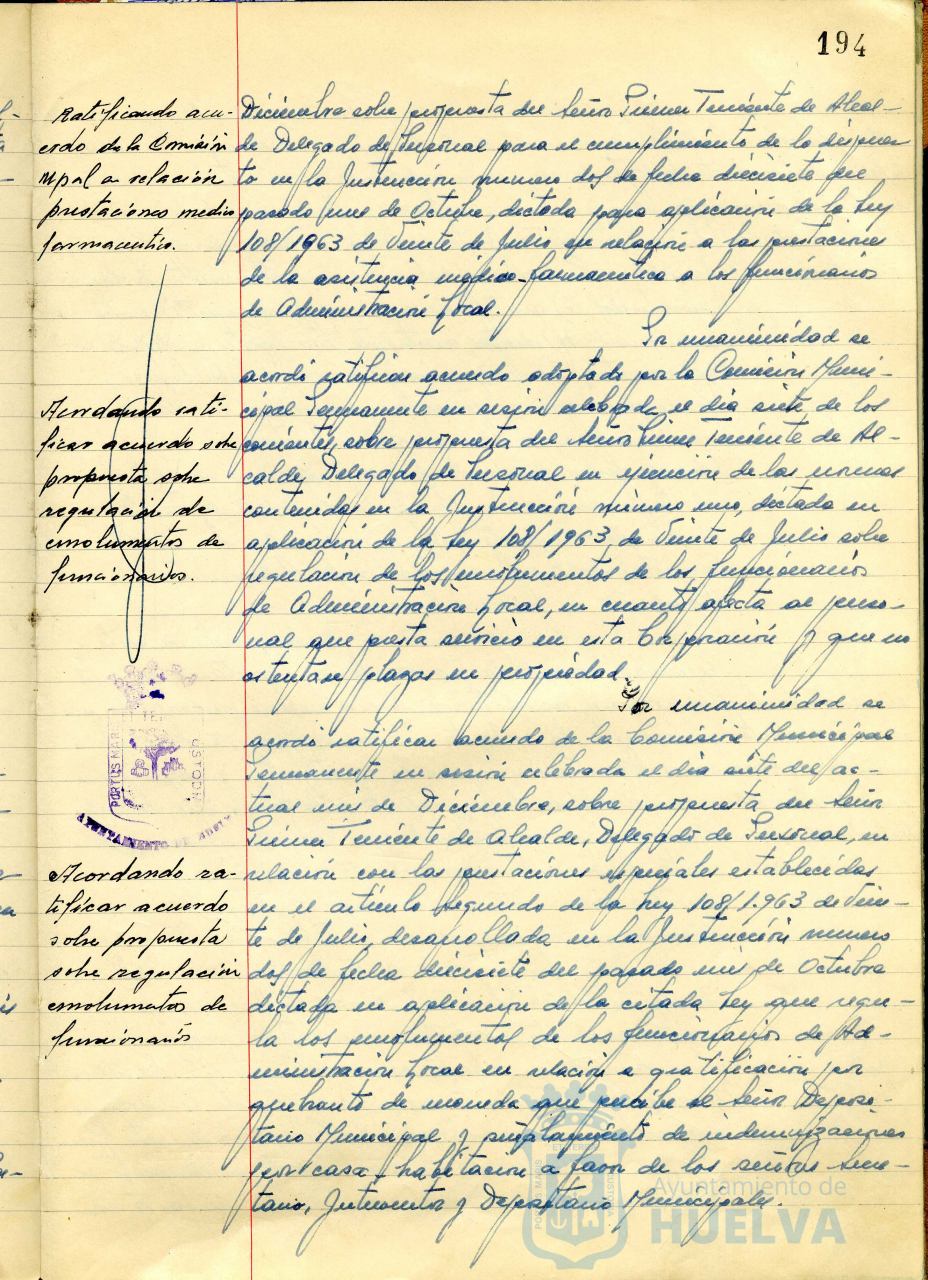 194
Ratificando acu-
erdo de la Comisión
Mpal a relación
prestaciones medico
farmaceutica.
Diciembre sobre propuesta del Señor Primer Teniente de Alcal-
de Delegado de Personal para el cumplimiento de lo dispues
to en la Instrucción numero dos de fecha diecisiete del
pasado mes de Octubre, dictada para aplicación de la Ley
108/1963 de Veinte de Julio en relación a las prestaciones
de la asistencia médico-farmaceutica a los funcionarios
de Administración Local.
Por unanimidad se
acordó ratificar acuerdo adoptado por la Comisión Muni-
cipal Permanente en sesión celebrada el día siete de los
corrientes, sobre propuesta del Señor Primer Teniente de Al-
calde, Delegado de Personal en ejecución de las normas
contenidas en la Instrucción número uno, dictada en
aplicación de la Ley 108/1963, de Veinte de Julio sobre
regulación de los emolumentos de los funcionarios
de Administración Local, en cuanto afecta al perso-
nal que presta servicio en esta Corporación y que no
ostentase plazas en propiedad.
Acordando rati-
ficar acuerdo sobre
propuesta sobre
regulación de
emolumentos de
funcionarios.
Por unanimidad se
acordó ratificar acuerdo de la Comisión Municipal
Permanente en sesión celebrada el día siete del ac-
tual mes de Diciembre, sobre propuesta del Señor
Primer Teniente de Alcalde, Delegado de Personal, en
relación con las prestaciones especiales establecidas
en el artículo Segundo de la Ley 108/1.963 de Vein-
te de Julio, desarrollada en la Instrucción numero
dos de fecha diecisiete del pasado mes de Octubre
dictada en aplicación de la citada Ley que regu-
la los emolumentos de los funcionarios de Ad-
ministración Local en relación a gratificación por
quebranto de moneda que percibe el Señor Deposi-
tario Municipal y señalamiento de indemnizaciones
por casa-habitación a favor de los señores Secre-
tario, Interventor y Depositario Municipales.
Acordando ra-
tificar acuerdo
sobre propuesta
sobre regulación
emolumentos de
funcionarios
PORTUS MAR
CUSTODI
AYUNTAMIENTO DE HUELV
Ayuntamiento de
HUELVA